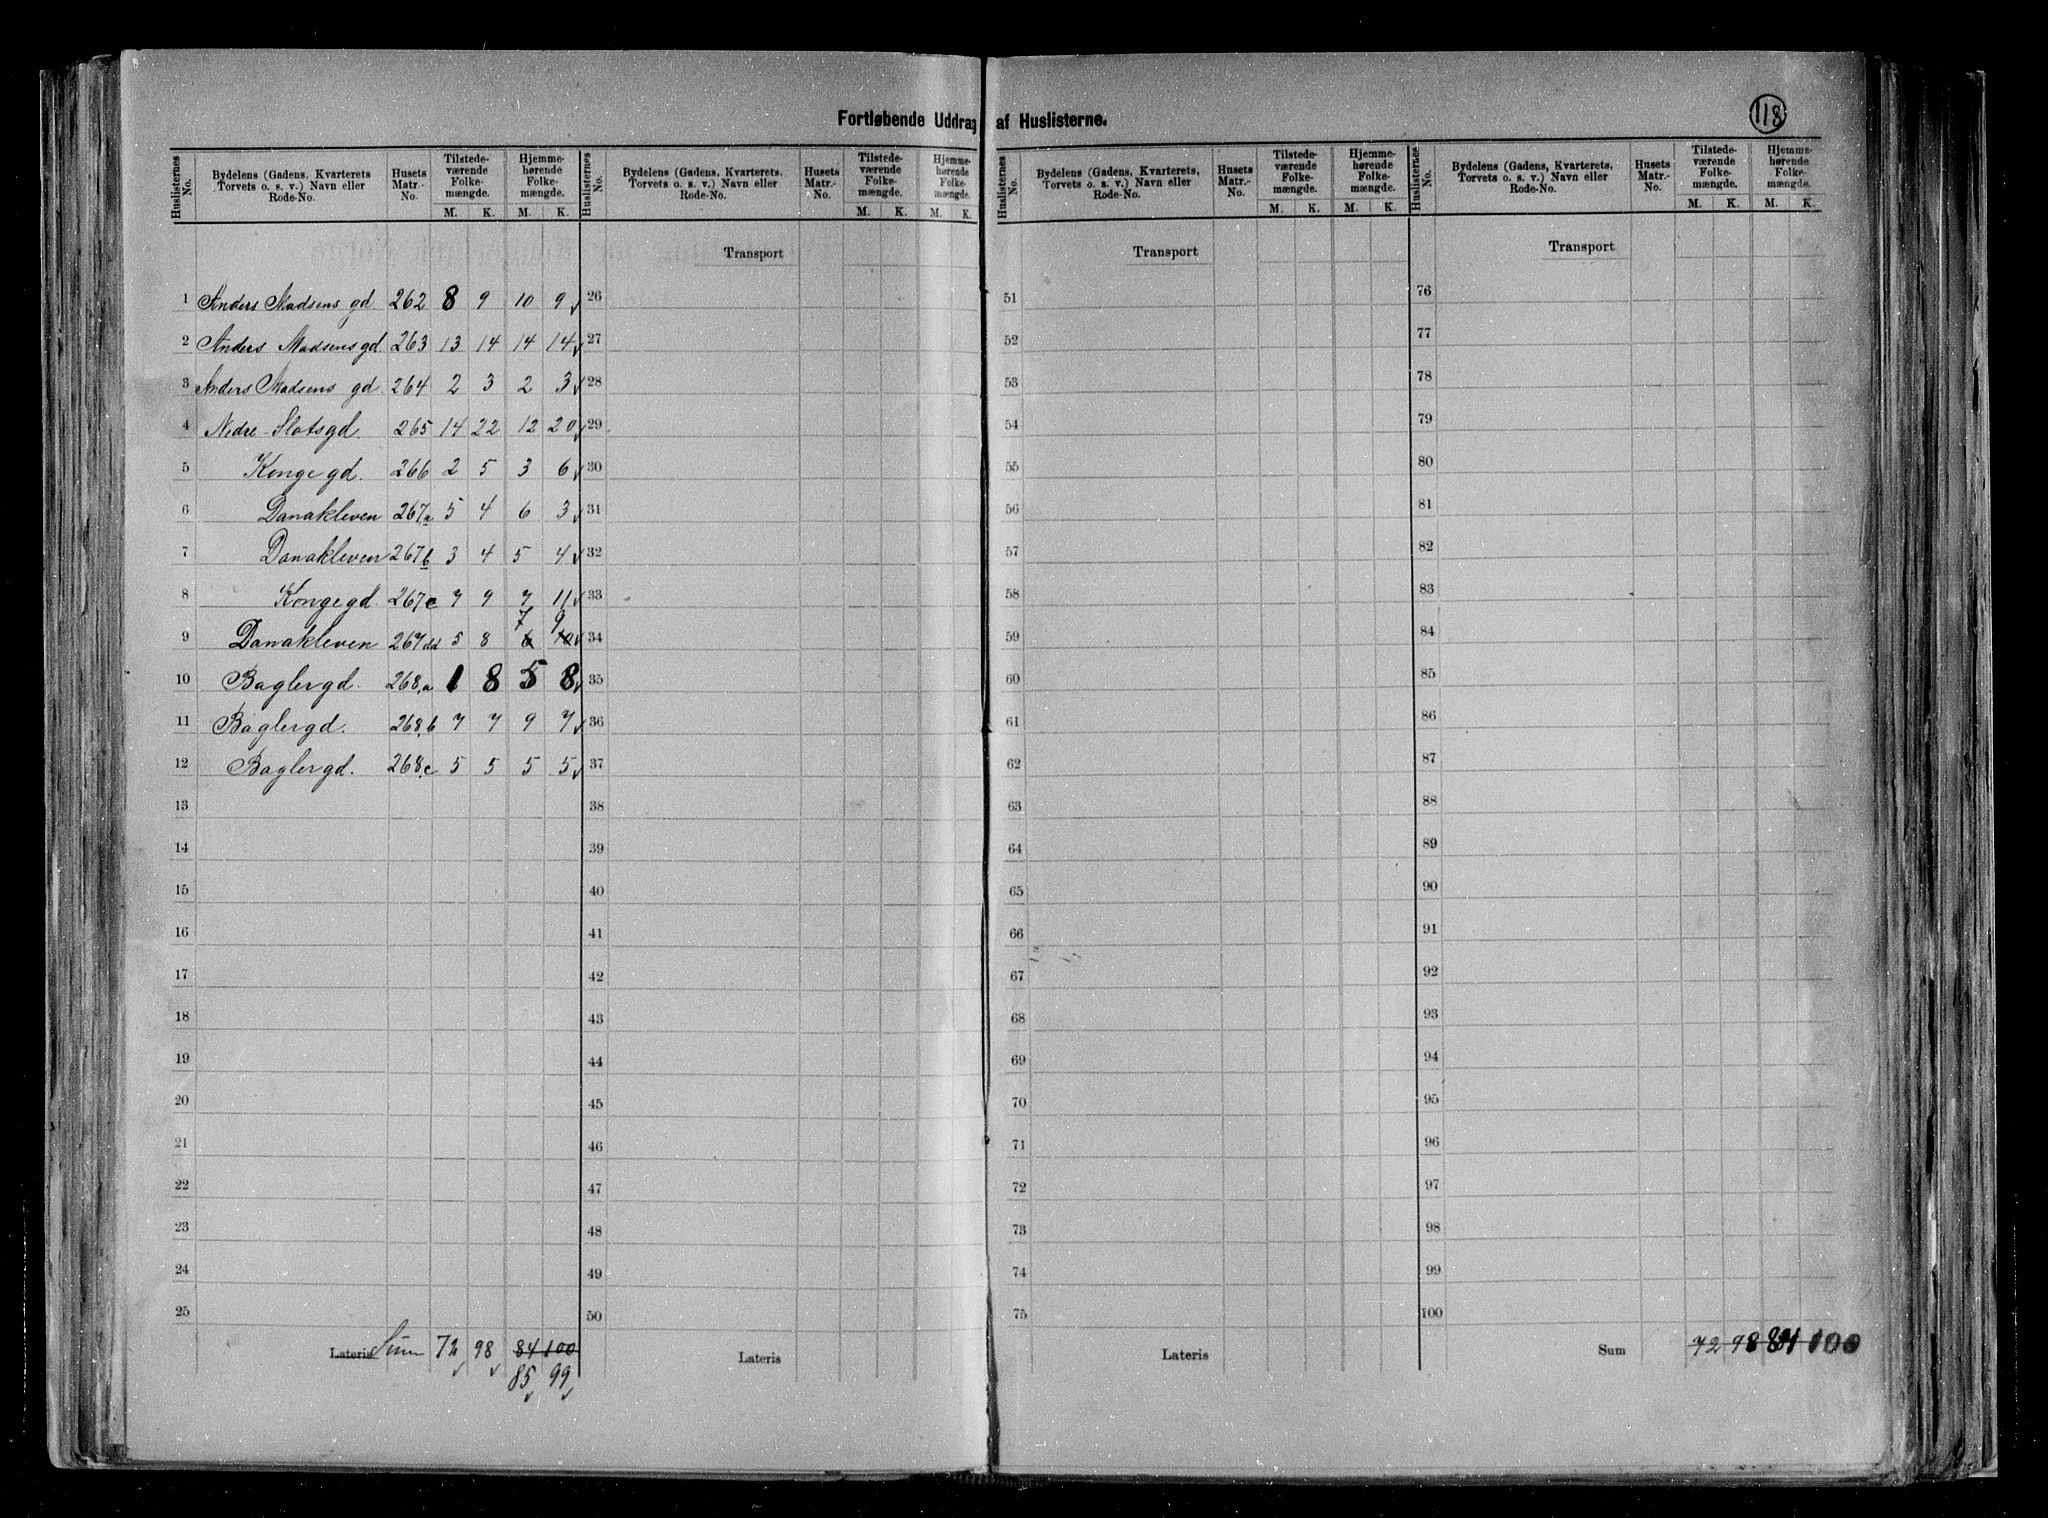 Fortløbende Uddrag af Huslisterne.
118
Huslisternes No. Bydelens (Gadens, Kvarterets, Torvets o. s. v.) Navn eller Rode-No. Husets Matr.-No. Tilstedeværende Folkemængde. M. K. Hjemmehørende Folkemængde. M. K.
1 Anders Madsens gd 262 8 9 10 9
2 Anders Madsens gd 263 13 14 14 14
3 Anders Madsens gd. 264 2 3 2 3
4 Nedre Slotsgd. 265 14 22 12 20
5 Kongegd. 266 2 5 3 6
6 Danakleven 267a 5 4 6 3
7 Danakleven 267b 3 4 5 4
8 Kongegd. 267c 7 9 7 11
7 9
9 Danakleven 267d 5 8 6 10
10 Baglergd. 268,a 1 8 5 8
11 Baglergd. 268,b 7 7 9 7
12 Baglergd. 268,c 5 5 5 5
13
14
15
16
17
18
19
20
21
22
23
24
25
Lateris Sum 72 98 84 100
85 99
Huslisternes No. Bydelens (Gadens, Kvarterets, Torvets o. s. v.) Navn eller Rode-No. Husets Matr.-No. Tilstedeværende Folkemængde. M. K. Hjemmehørende Folkemængde. M. K.
Transport
26
27
28
29
30
31
32
33
34
35
36
37
38
39
40
41
42
43
44
45
46
47
48
49
50
Lateris
Huslisternes No. Bydelens (Gadens, Kvarterets, Torvets o. s. v.) Navn eller Rode-No. Husets Matr.-No. Tilstedeværende Folkemængde. M. K. Hjemmehørende Folkemængde. M. K.
Transport
51
52
53
54
55
56
57
58
59
60
61
62
63
64
65
66
67
68
69
70
71
72
73
74
75
Lateris
Huslisternes No. Bydelens (Gadens, Kvarterets, Torvets o. s. v.) Navn eller Rode-No. Husets Matr.-No. Tilstedeværende Folkemængde. M. K. Hjemmehørende Folkemængde. M. K.
Transport
76
77
78
79
80
81
82
83
84
85
86
87
88
89
90
91
92
93
94
95
96
97
98
99
100
Sum 72 98 84 100